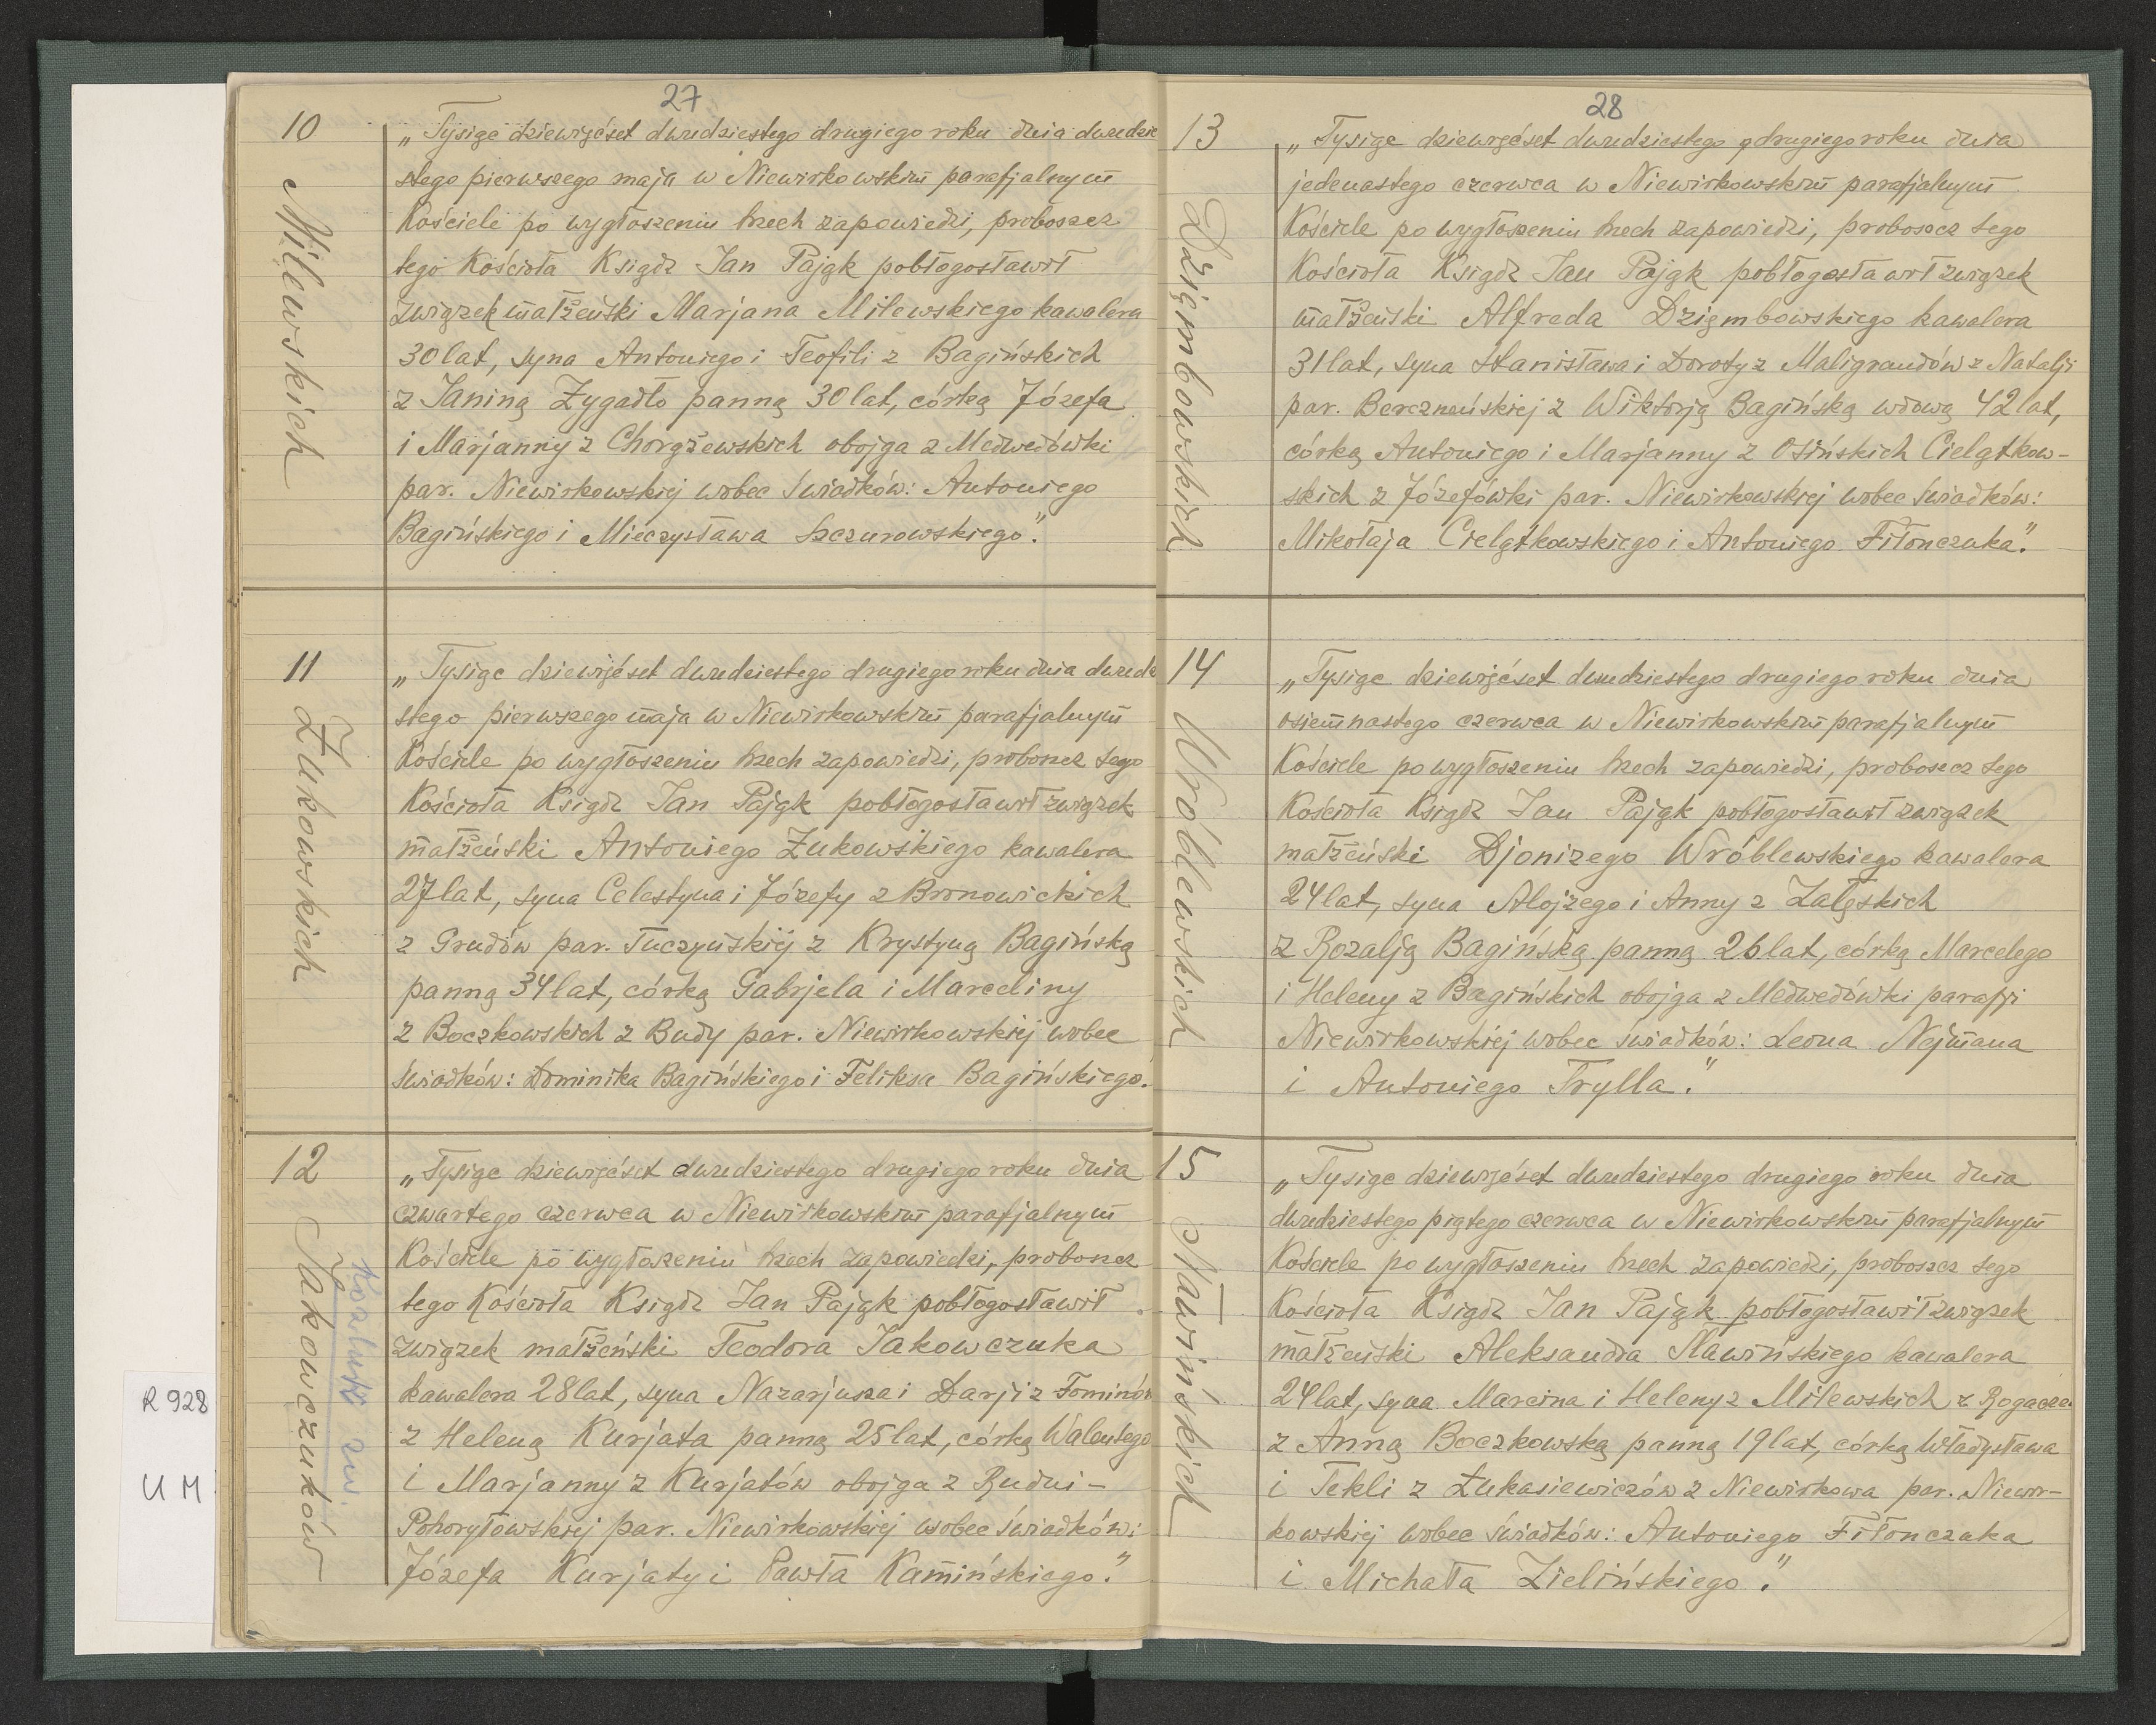 27
10
Milewskich
„Tysiąc dziewięćset dwudziestego drugiego roku dnia dwudzie
stego pierwszego maja w Niewirkowskim parafjalnym
Kościele po wygłoszeniu trzech zapowiedzi, proboszcz
tego Kościoła Ksiądz Jan Pająk pobłogosławił
związek małżeński Marjana Milewskiego kawalera
30 lat, syna Antoniego i Teofili z Bagińskich
z Janiną Zygadło panną 30 lat, córką Józefa
i Marjanny z Chorążewskich obojga z Medwedówki
par. Niewirkowskiej wobec świadków: Antoniego
Bagińskiego i Mieczysława Szczurowskiego."
11
Żukowskich
„Tysiąc dziewięćset dwudziestego drugiego roku dnia dwudz
stego pierwszego maja w Niewirkowskim parafjalnym
Kościele po wygłoszeniu trzech zapowiedzi, proboszcz tego
Kościoła Ksiądz Jan Pająk pobłogosławił związek
małżeński Antoniego Żukowskiego kawalera
27 lat, syna Celestyna i Józefy z Bronowickich
z Grudów par. Tuczyńskiej z Krystyną Bagińską
panną 34 lat, córką Gabrjela i Marceliny
z Boczkowskich z Budy par. Niewirkowskiej wobec
świadków: Dominika Bagińskiego i Feliksa Bagińskiego.
12
Jakowczuków
„Tysiąc dziewięćset dwudziestego drugiego roku dnia
czwartego czerwca w Niewirkowskim parafjalnym
Kościele po wygłoszeniu trzech zapowiedzi, proboszcz
tego Kościoła Ksiądz Jan Pająk pobłogosławił
związek małżeński Teodora Jakowczuka
kawalera 28 lat, syna Nazarjusza i Darji z Fominów
z Heleną Kurjata panną 25 lat, córką Walentego
i Marjanny z Kurjatów obojga z Rudni-
Pohoryłowskiej par. Niewirkowskiej wobec świadków:
Józefa Kurjaty i Pawła Kamińskiego."
28
13
Dziembowskich
„Tysiąc dziewięćset dwudziestego drugiego roku dnia
jedenastego czerwca w Niewirkowskim parafjalnym
Kościele po wygłoszeniu trzech zapowiedzi, proboszcz tego
Kościoła Ksiądz Jan Pająk pobłogosławił związek
małżeński Alfreda Dziembowskiego kawalera
31 lat, syna Stanisława i Doroty z Maligrandów z Natalji
par. Berezneńskiej z Wiktorją Bagińską wdową 42 lat,
córką Antoniego i Marjanny z Osińskich Cielątkow-
skich z Józefówki par. Niewirkowskiej wobec świadków:
Mikołaja Cielątkowskiego i Antoniego Fiłonczuka."
14
Wróblewskich
„Tysiąc dziewięćset dwudziestego drugiego roku dnia
osiemnastego czerwca w Niewirkowskim parafjalnym
Kościele po wygłoszeniu trzech zapowiedzi, proboszcz tego
Kościoła Ksiądz Jan Pająk pobłogosławił związek
małżeński Djonizego Wróblewskiego kawalera
24 lat, syna Alojzego i Anny z Załęskich
z Rozalją Bagińską panną 26 lat, córką Marcelego
i Heleny z Bagińskich obojga z Medwedówki parafji
Niewirkowskiej wobec świadków: Leona Nejmana
i Antoniego Trylla."
15
Sławińskich
„Tysiąc dziewięćset dwudziestego drugiego roku dnia
dwudziestego piątego czerwca w Niewirkowskim parafjalnym
Kościele po wygłoszeniu trzech zapowiedzi, proboszcz tego
Kościoła Ksiądz Jan Pająk pobłogosławił związek
małżeński Aleksandra Sławińskiego kawalera
24 lat, syna Marcina i Heleny z Milewskich z Rogacze
z Anną Boczkowską panną 19 lat, córką Władysława
i Tekli z Łukasiewiczów z Niewirkowa par. Niewir-
kowskiej wobec świadków: Antoniego Fiłonczuka
i Michała Zielińskiego."
R 928
U M